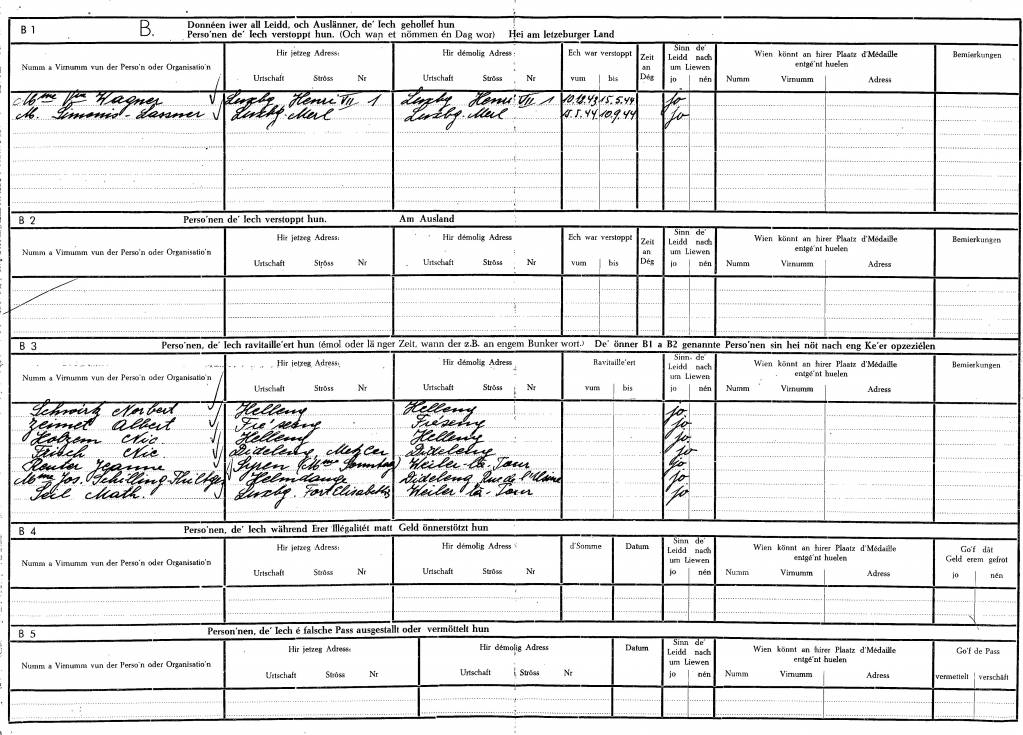 B 1 B. Donnéen iwer all Leidd, och Auslänner, de' Iech gehollef hun
Perso'nen de' Iech verstoppt hun. (Och wan et nömmen én Dag wor) Hei am letzeburger Land
Numm a Virnumm vun der Perso'n oder Organisatio'n Hir jetzeg Adress: Hir démolig Adress: Ech war verstoppt Zeit an Dég Sinn de' Leidd nach um Liewen Wien könnt an hirer Plaatz d'Médaille entgé'nt huelen Bemierkungen
Urtschaft Ströss Nr Urtschaft Ströss Nr vum bis jo nén Numm Virnumm Adress
Mme Vve Wagner Luxbg Henri VII 1 Luxbg Henri VII 1 10.12.43 15.5.44 jo
M. Simonis-Lassner Luxbg.-Merl Luxbg.-Merl 15.5.44 10.9.44 jo
B 2 Perso'nen de' Iech verstoppt hun. Am Ausland
Numm a Virnumm vun der Perso'n oder Organisatio'n Hir jetzeg Adress: Hir démolig Adress Ech war verstoppt Zeit an Dég Sinn de' Leidd nach um Liewen Wien könnt an hirer Plaatz d'Médaille entgé'nt huelen Bemierkungen
Urtschaft Ströss Nr Urtschaft Ströss Nr vum bis jo nén Numm Virnumm Adress
B 3 Perso'nen, de' Iech ravitaille'ert hun (émol oder länger Zeit, wann der z.B. an engem Bunker wort.) De' önner B1 a B2 genannte Perso'nen sin hei nöt nach eng Ke'er opzeziélen
Numm a Virnumm vun der Perso'n oder Organisatio'n Hir jetzeg Adress: Hir démolig Adress Ravitaille'ert Sinn de' Leidd nach um Liewen Wien könnt an hirer Plaatz d'Médaille entgé'nt huelen Bemierkungen
Urtschaft Ströss Nr Urtschaft Ströss Nr vum bis jo nén Numm Virnumm Adress
Schwirtz Norbert Helleng Helleng jo
Zeimet Albert Fre'seng Fréseng jo
Holzem Nic Helleng Helleng jo
Frisch Nic Dideleng Metzler Dideleng jo
Reuter Jeanne Syren (Mme Sonntag) Weiler-la-Tour jo
Mme Jos. Schilling-Thiltges Helmdange Dideleng Rue de l'Usine jo
Seil Math. Luxbg. Fort Elisabeth Weiler-la-Tour jo
B 4 Perso'nen, de' Iech während Erer Illégalitét matt Geld önnerstötzt hun
Numm a Virnumm vun der Perso'n oder Organisatio'n Hir jetzeg Adress: Hir démolig Adress d'Somme Datum Sinn de' Leidd nach um Liewen Wien könnt an hirer Plaatz d'Médaille entgé'nt huelen Go'f dât Geld erem gefrot
Urtschaft Ströss Nr Urtschaft Ströss Nr jo nén Numm Virnumm Adress jo nén
B 5 Person'nen, de' Iech é falsche Pass ausgestallt oder vermöttelt hun
Numm a Virnumm vun der Perso'n oder Organisatio'n Hir jetzeg Adress: Hir démolig Adress Datum Sinn de' Leidd nach um Liewen Wien könnt an hirer Plaatz d'Médaille entgé'nt huelen Go'f de Pass
Urtschaft Ströss Nr Urtschaft Ströss Nr jo nén Numm Virnumm Adress vermettelt verschäft